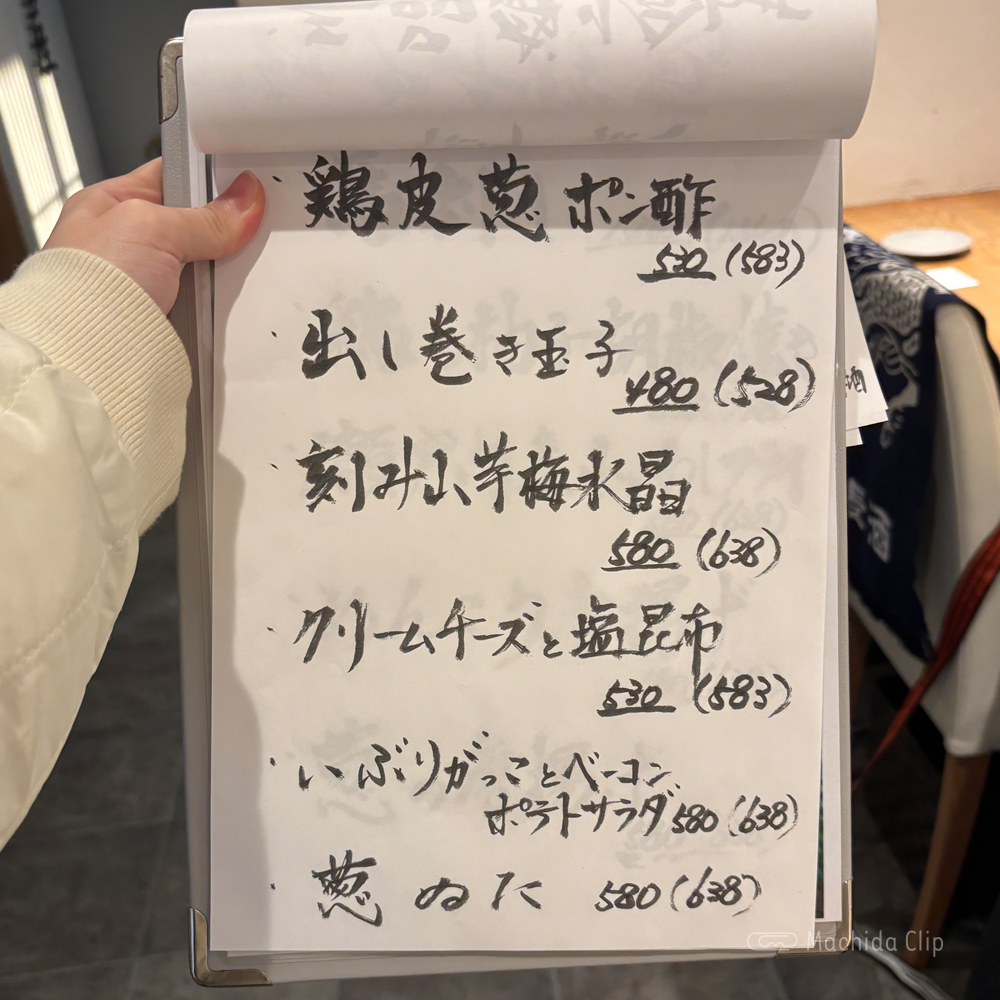 ・鶏皮葱ポン酢
530(583)
・出し巻き玉子
480(528)
・刻み山芋梅水晶
580(638)
・クリームチーズと塩昆布
530(583)
・いぶりがっことベーコン
ポテトサラダ580(638)
・葱ぬた 580(638)
酒
Machida Clip